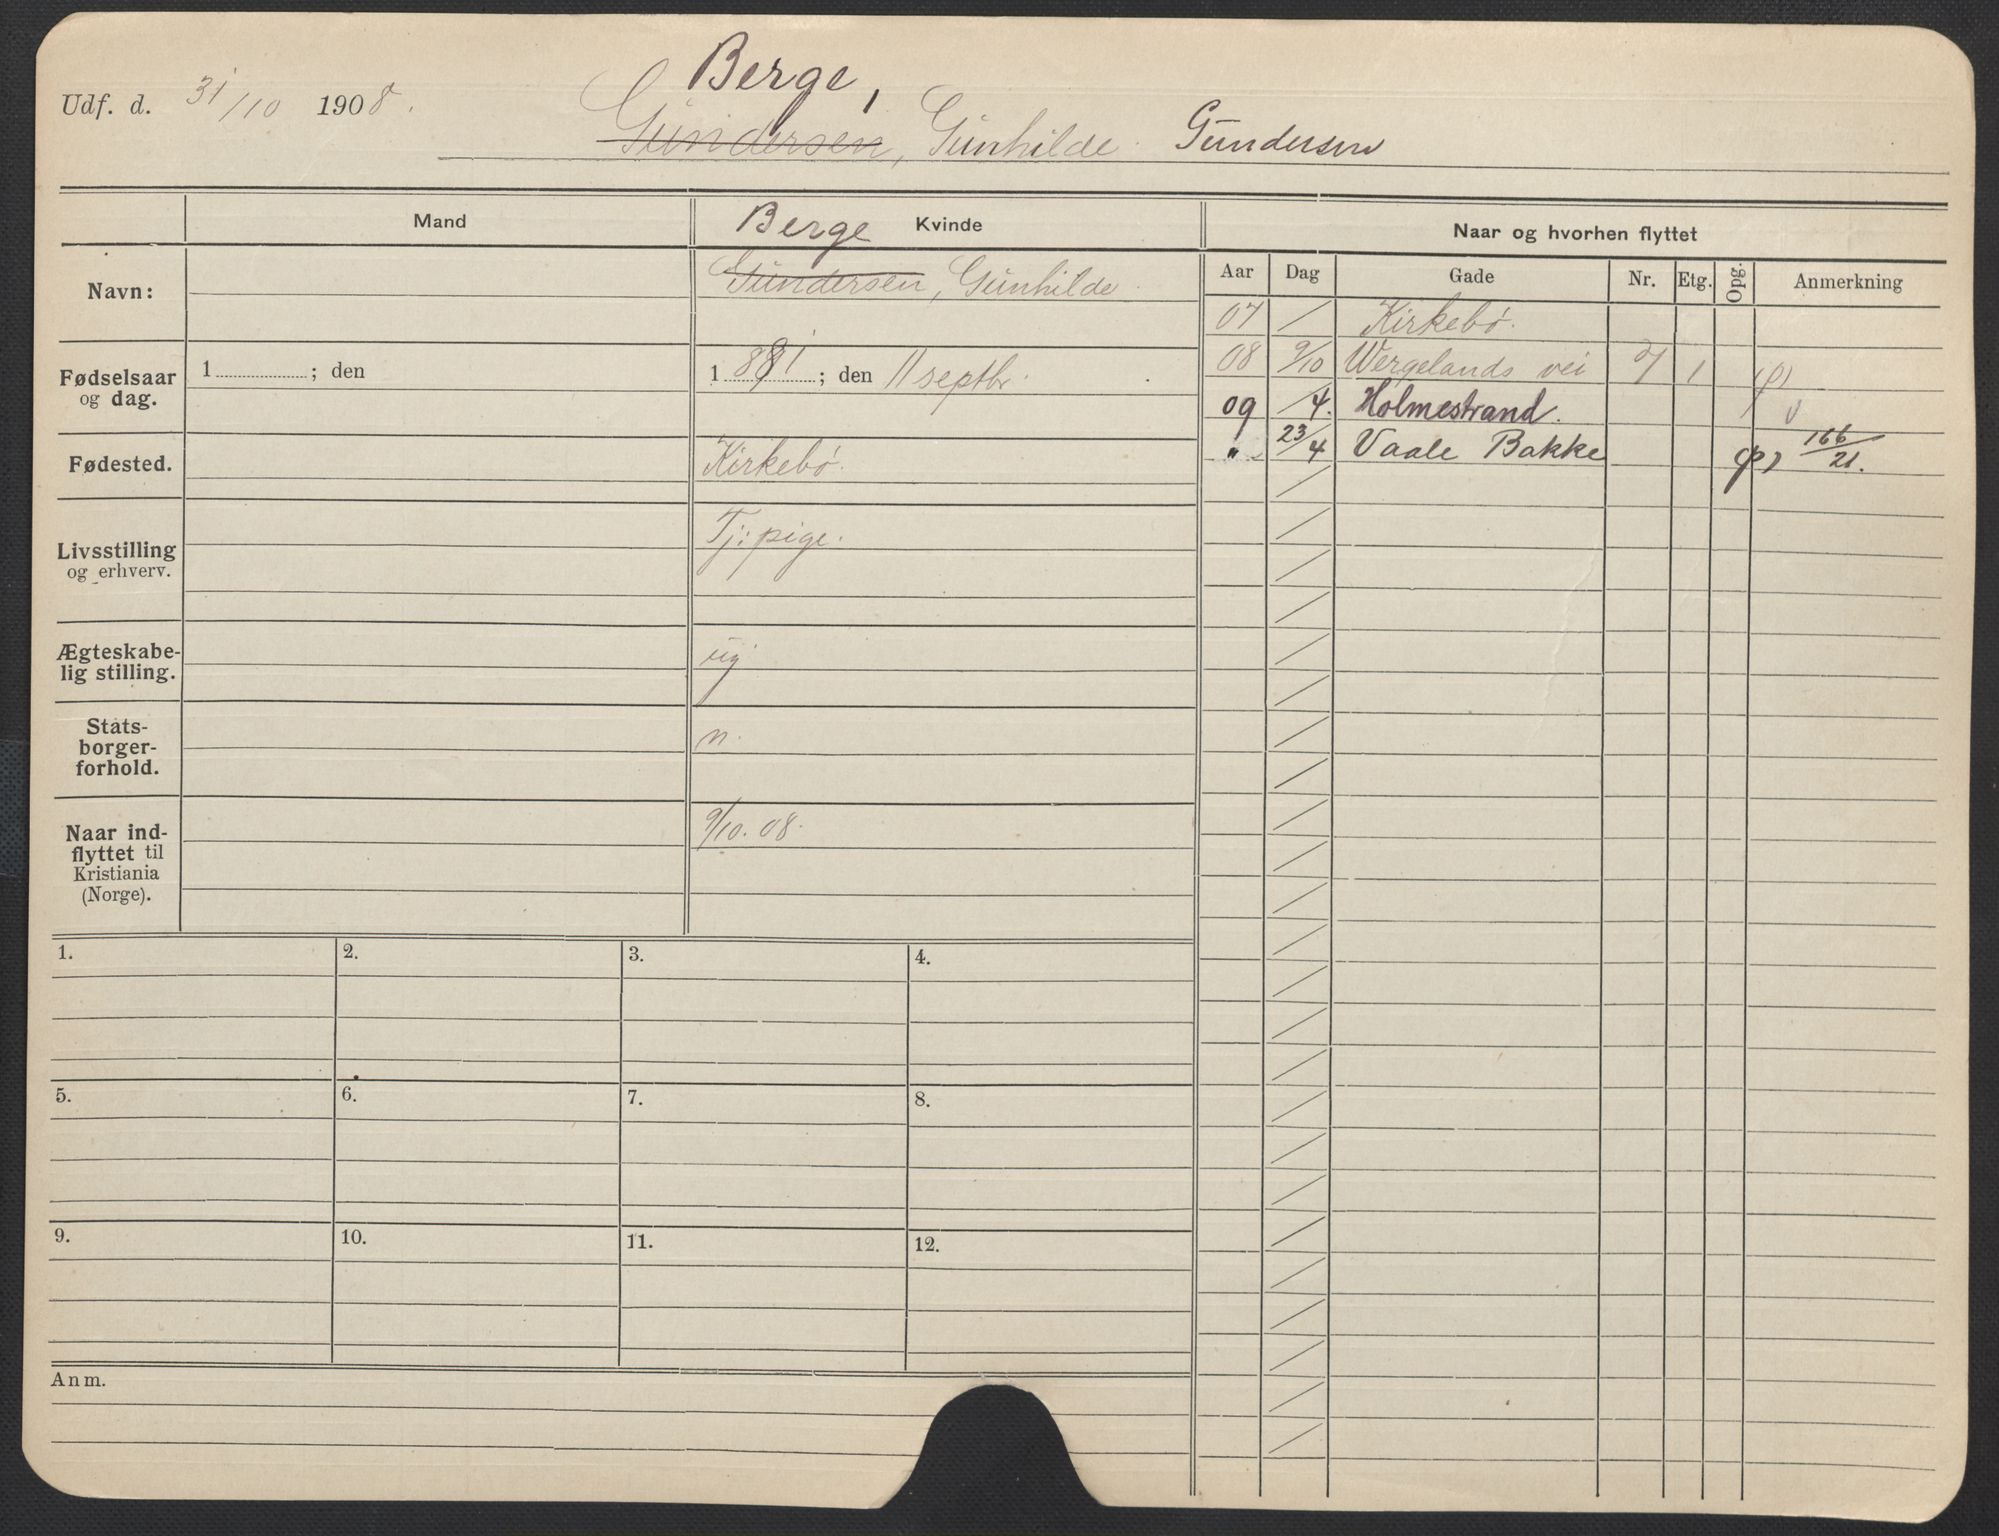 Berge,
Udf. d. 31/10 1908.
Gundersen, Gunhilde. Gundersen
Mand
Berge Kvinde
Naar og hvorhen flyttet
Navn:
Gundersen, Gunhilde.
Aar Dag Gade Nr. Etg. Opg. Anmerkning
07 / Kirkebø.
08 9/10 Wergelands vei 7 1 (p)
09 /4. Holmestrand. v
" 23/4 Vaale Bakke (p) 166/21.
Fødselsaar og dag.
1 ; den
1881 ; den 11 septbr.
Fødested.
Kirkebø.
Livsstilling og erhverv.
Tj: pige.
Ægteskabe-
lig stilling.
ug
Stats-
borger-
forhold.
n.
Naar ind-
flyttet til
Kristiania
(Norge).
9/10. 08.
1. 2. 3. 4.
5. 6. 7. 8.
9. 10. 11. 12.
Anm.